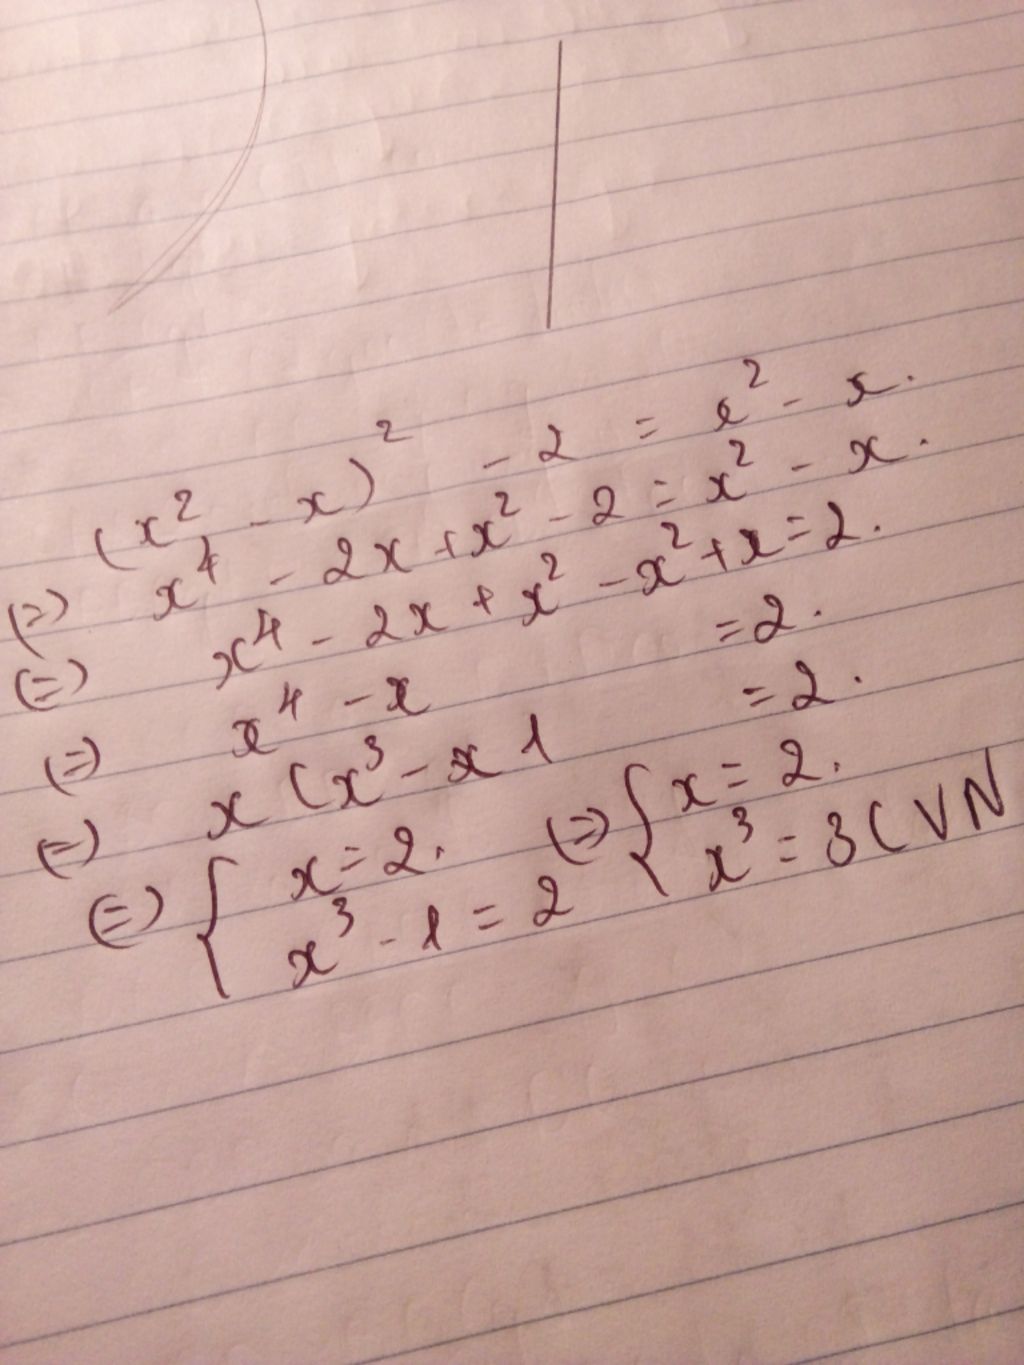 (x² - x)² - 2 = x² - x.
(=) x⁴ - 2x + x² - 2 = x² - x.
(=) x⁴ - 2x + x² - x² + x = 2.
(=) x⁴ - x = 2.
(=) x (x³ - x 1 = 2.
(=) { x = 2. (=) { x = 2.
x³ - 1 = 2 x³ = 3 ( VN